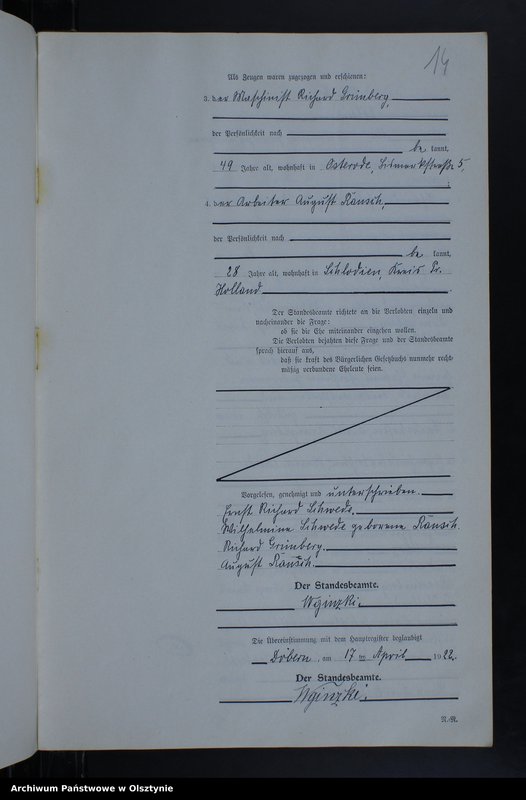 14
Als Zeugen waren zugezogen und erschienen:
3. der Maschinist Richard Grünberg,
der Persönlichkeit nach
be kannt,
49 Jahre alt, wohnhaft in Osterode, Bismarkstraße 5,
;
4. der Arbeiter August Kausch,
der Persönlichkeit nach
be kannt,
28 Jahre alt, wohnhaft in Schlodien, Kreis Pr.
Holland
Der Standesbeamte richtete an die Verlobten einzeln und
nacheinander die Frage:
ob sie die Ehe miteinander eingehen wollen.
Die Verlobten bejahten diese Frage und der Standesbeamte
sprach hierauf aus,
daß sie kraft des Bürgerlichen Gesetzbuchs nunmehr recht-
mäßig verbundene Eheleute seien.
Vorgelesen, genehmigt und unterschrieben.
Ernst Richard Schwede.
Wilhelmine Schwede geborene Kausch.
Richard Grünberg.
August Kausch.
Der Standesbeamte.
Die Übereinstimmung mit dem Hauptregister beglaubigt
Döbern, am 17 ten April 1922.
Der Standesbeamte.
R./R.
Archiwum Państwowe w Olsztynie